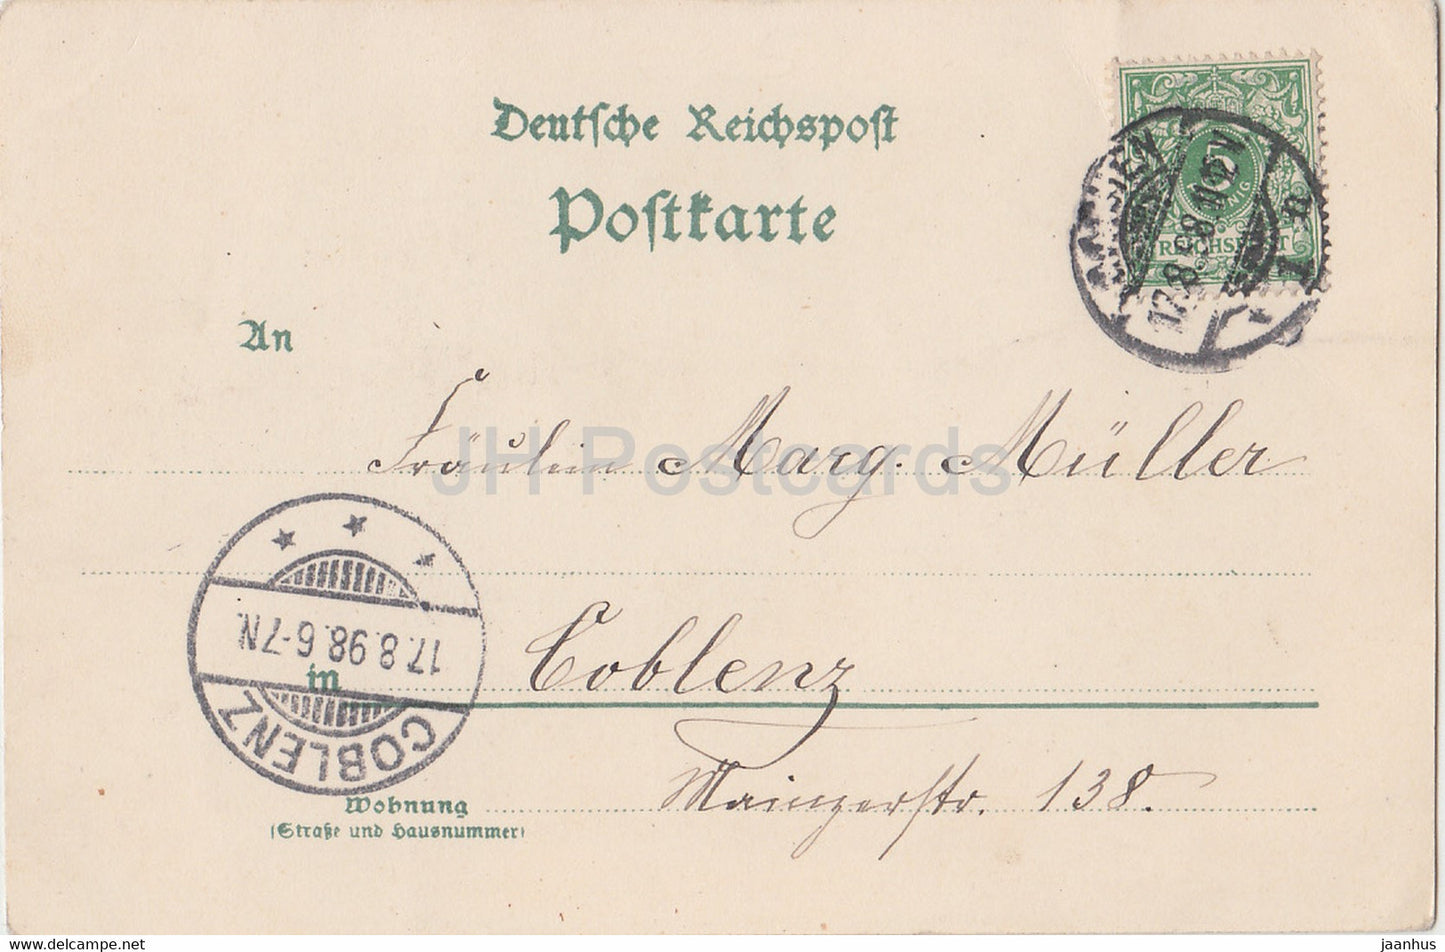 Deutsche Reichspost
Postkarte
5
REICHSPOST
17.8.98. 11-12V
1 n
An
Fräulein Marg. Müller
JH Postcards
17.8.98.6-7N.
COBLENZ
in Coblenz
Mainzerstr. 138.
Wohnung
(Straße und Hausnummer)
delcampe.net
jaanhus